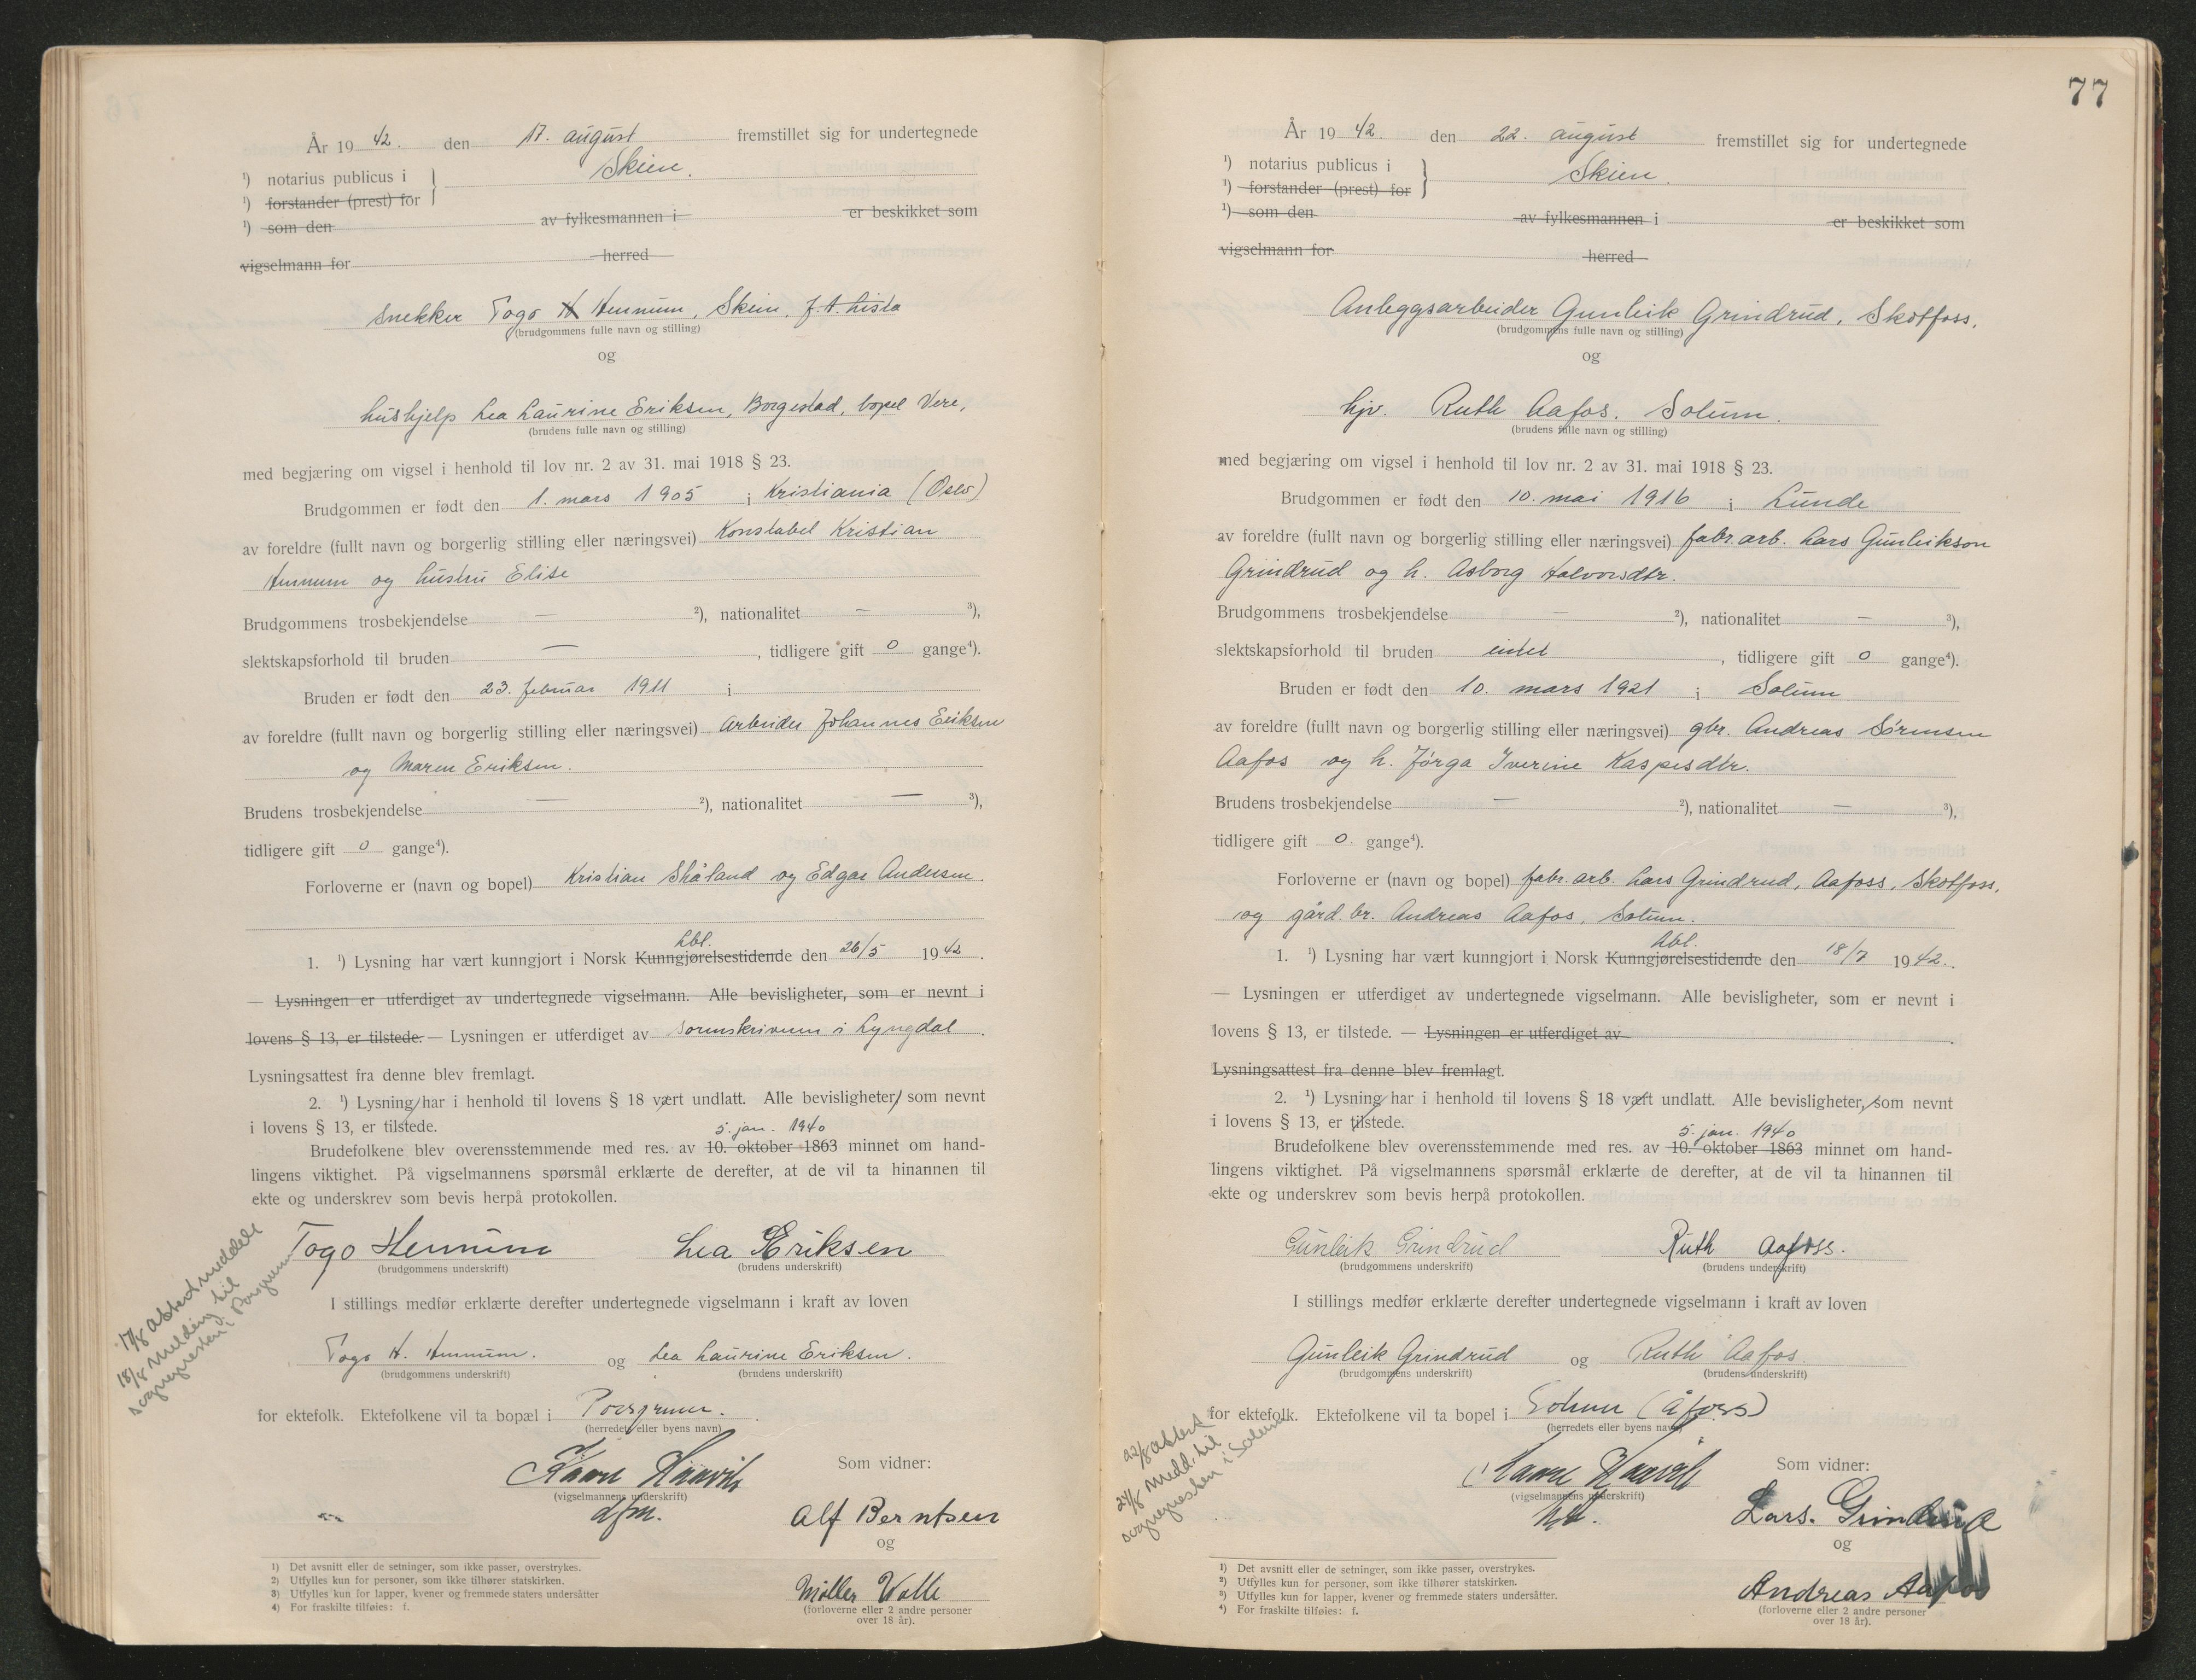 År 1942. den 17. august fremstillet sig for undertegnede
¹) notarius publicus i Skien.
¹) forstander (prest) for
¹) som den av fylkesmannen i er beskikket som
vigselmann for herred
snekker Togo H Hennum, Skien, f. t. Lista
(brudgommens fulle navn og stilling)
og
hushjelp Lea Laurine Eriksen, Borgestad, bopel Vere,
(brudens fulle navn og stilling)
med begjæring om vigsel i henhold til lov nr. 2 av 31. mai 1918 § 23.
Brudgommen er født den 1. mars 1905 i Kristiania (Oslo)
av foreldre (fullt navn og borgerlig stilling eller næringsvei) Konstabel Kristian
Hennum og hustru Elise
Brudgommens trosbekjendelse — ²), nationalitet — ³),
slektskapsforhold til bruden —, tidligere gift 0 gange⁴).
Bruden er født den 23. februar 1911 i
av foreldre (fullt navn og borgerlig stilling eller næringsvei) Arbeider Johannes Eriksen
og Maren Eriksen.
Brudens trosbekjendelse — ²), nationalitet — ³),
tidligere gift 0 gange⁴).
Forloverne er (navn og bopel) Kristian Skåland og Edgar Andersen.
Lbl.
1. ¹) Lysning har vært kunngjort i Norsk Kunngjørelsestidende den 26/5 1942.
— Lysningen er utferdiget av undertegnede vigselmann. Alle bevisligheter, som er nevnt i
lovens § 13, er tilstede. — Lysningen er utferdiget av sorenskriveren i Lyngdal.
Lysningsattest fra denne blev fremlagt.
2. ¹) Lysning har i henhold til lovens § 18 vært undlatt. Alle bevisligheter, som nevnt
i lovens § 13, er tilstede.
5. jan. 1940
Brudefolkene blev overensstemmende med res. av 10. oktober 1863 minnet om hand-
lingens viktighet. På vigselmannens spørsmål erklærte de derefter, at de vil ta hinannen til
ekte og underskrev som bevis herpå protokollen.
Togo Hennum Lea Eriksen
(brudgommens underskrift) (brudens underskrift)
I stillings medfør erklærte derefter undertegnede vigselmann i kraft av loven
Togo H. Hennum. og Lea Laurine Eriksen.
(brudgommens underskrift) (brudens underskrift)
17/8 attest meddelt
18/8 melding til
sognepresten i Porsgrunn
for ektefolk. Ektefolkene vil ta bopæl i Porsgrunn.
(herredets eller byens navn)
Som vidner:
(vigselmannens underskrift)
dfm.
Alf Berntsen
og
Møller Watle
(forloverne eller 2 andre personer
over 18 år).
1) Det avsnitt eller de setninger, som ikke passer, overstrykes.
2) Utfylles kun for personer, som ikke tilhører statskirken.
3) Utfylles kun for lapper, kvener og fremmede staters undersåtter
4) For fraskilte tilføies: f.
77
År 1942. den 22. august fremstillet sig for undertegnede
¹) notarius publicus i Skien.
¹) forstander (prest) for
¹) som den av fylkesmannen i er beskikket som
vigselmann for herred
Anleggsarbeider Gunleik Grindrud, Skotfoss.
(brudgommens fulle navn og stilling)
og
hjv. Ruth Aafos. Solum.
(brudens fulle navn og stilling)
med begjæring om vigsel i henhold til lov nr. 2 av 31. mai 1918 § 23.
Brudgommen er født den 10. mai 1916 i Lunde
av foreldre (fullt navn og borgerlig stilling eller næringsvei) fabr. arb. Lars Gunleikson
Grindrud og h. Asborg Halvorsdtr.
Brudgommens trosbekjendelse — ²), nationalitet — ³),
slektskapsforhold til bruden intet, tidligere gift 0 gange⁴).
Bruden er født den 10. mars 1921 i Solum
av foreldre (fullt navn og borgerlig stilling eller næringsvei) gbr. Andreas Sørensen
Aafos og h. Jørga Iverine Kaspersdtr.
Brudens trosbekjendelse — ²), nationalitet — ³),
tidligere gift 0. gange⁴).
Forloverne er (navn og bopel) fabr. arb. Lars Grindrud, Aafoss, Skotfoss,
og gård. br. Andreas Aafos, Solum.
Lbl.
1. ¹) Lysning har vært kunngjort i Norsk Kunngjørelsestidende den 18/7 1942.
— Lysningen er utferdiget av undertegnede vigselmann. Alle bevisligheter, som er nevnt i
lovens § 13, er tilstede. — Lysningen er utferdiget av
Lysningsattest fra denne blev fremlagt.
2. ¹) Lysning har i henhold til lovens § 18 vært undlatt. Alle bevisligheter, som nevnt
i lovens § 13, er tilstede.
5. jan. 1940
Brudefolkene blev overensstemmende med res. av 10. oktober 1863 minnet om hand-
lingens viktighet. På vigselmannens spørsmål erklærte de derefter, at de vil ta hinannen til
ekte og underskrev som bevis herpå protokollen.
Gunleik Grindrud Ruth Aafoss.
(brudgommens underskrift) (brudens underskrift)
I stillings medfør erklærte derefter undertegnede vigselmann i kraft av loven
Gunleik Grindrud og Ruth Aafos
(brudgommens underskrift) (brudens underskrift)
22/8 attest
24/8 medd. til
sognepresten i Solum
for ektefolk. Ektefolkene vil ta bopel i Solum (Åfoss)
(herredets eller byens navn)
Som vidner:
(vigselmannens underskrift)
Lars. Grindrud
og
Andreas Aafos
(forloverne eller 2 andre personer
over 18 år).
¹) Det avsnitt eller de setninger, som ikke passer, overstrykes.
²) Utfylles kun for personer, som ikke tilhører statskirken.
³) Utfylles kun for lapper, kvener og fremmede staters undersåtter.
⁴) For fraskilte tilføies: f.